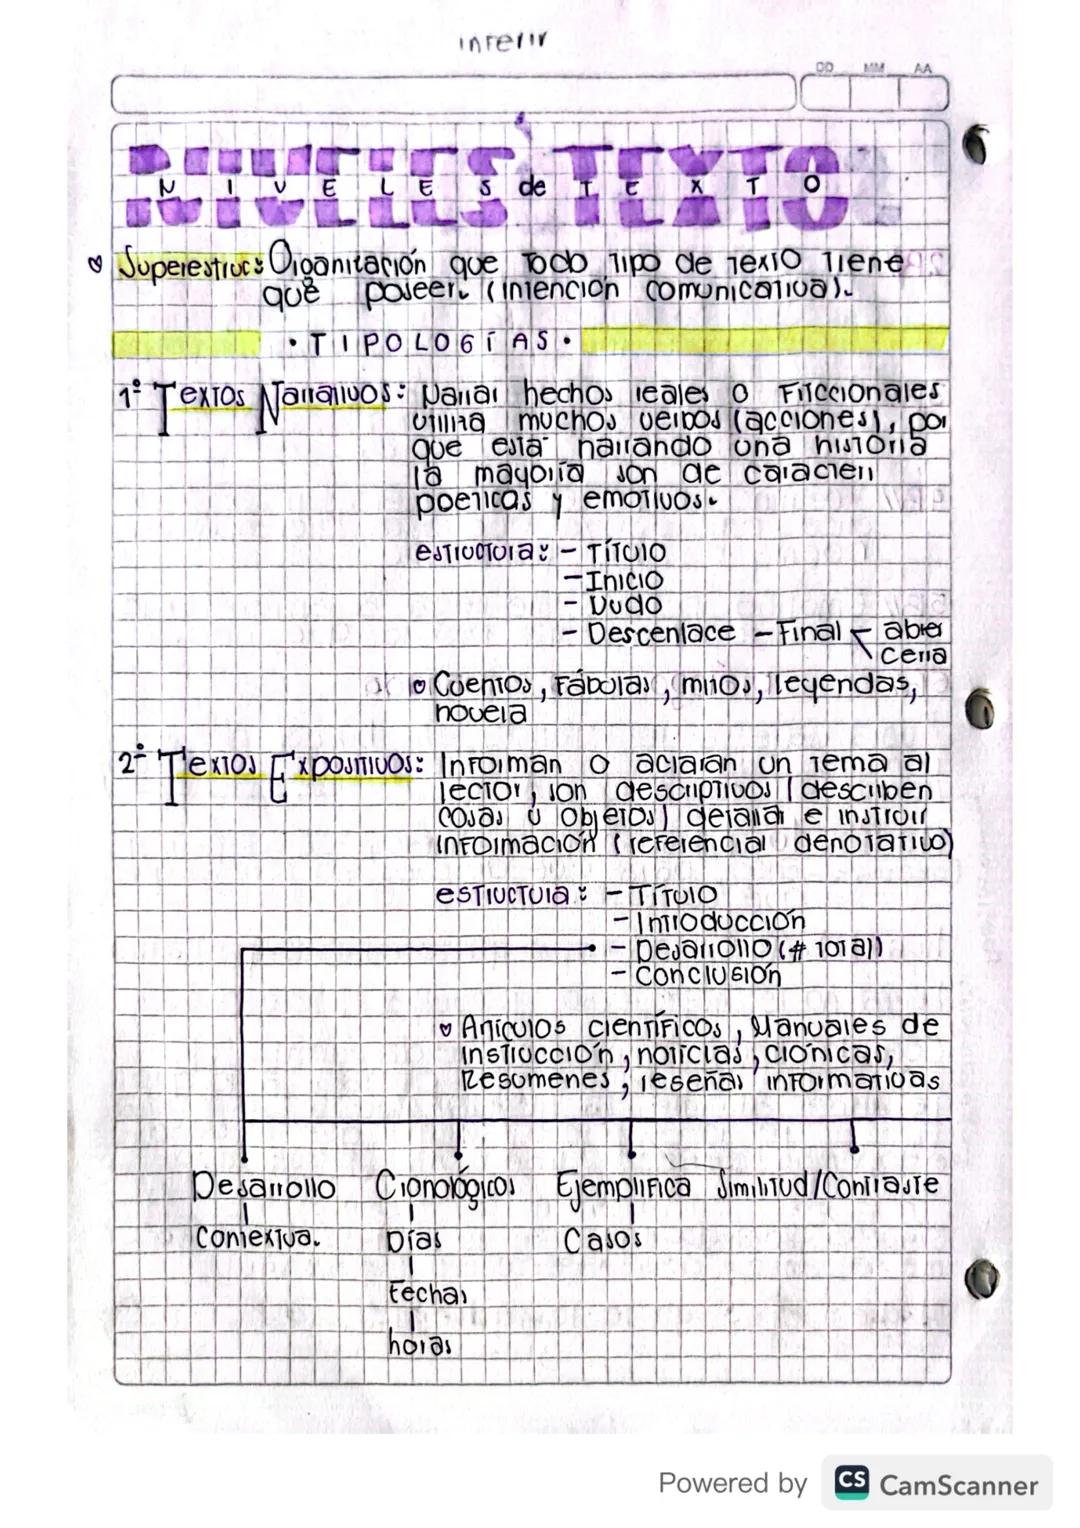 inferir
DD MM AA
NIVELES de TEXTO
Superestruc: Organización que todo tipo de texto tiene
que poseer. (intención comunicativa).
• TIPOLOGÍAS •
1º Textos Narrativos: Narrar hechos reales o Ficcionales
utiliza muchos verbos (acciones), por
que está narrando una historia
la mayoría son de caracter
poeticas y emotivos.
estructura: - Título
- Inicio
- Nudo
- Descenlace - Final abier
cerra
Cuentos, Fábulas, mitos, leyendas,
novela
2º Textos Expositivos: Informan o aclaran un tema al
lector, son descriptivos (describen
cosas u objetos) detalla e instruir
información (referencial denotativo)
estructura: - Título
- Introducción
- Desarrollo (# total)
- Conclusión
Artículos científicos, Manuales de
instrucción, noticias, crónicas,
Resumenes, reseñas informativas
Desarrollo Cronológicos Ejemplifica Similitud/Contraste
Contextua. Días Casos
Fechas
horas
Powered by CS CamScanner